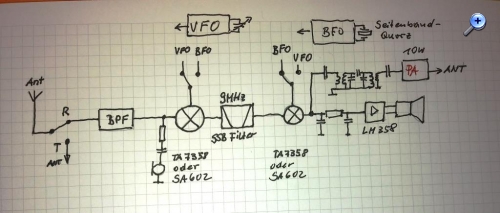 VFO
BFO
Seitenband-
Quarz
VFO BFO
BFO
VFO
10W
PA
ANT
Ant
R
T
ANT
BPF
9MHz
SSB Filter
LM358
TA7358
oder
SA602
TA7358
oder
SA602